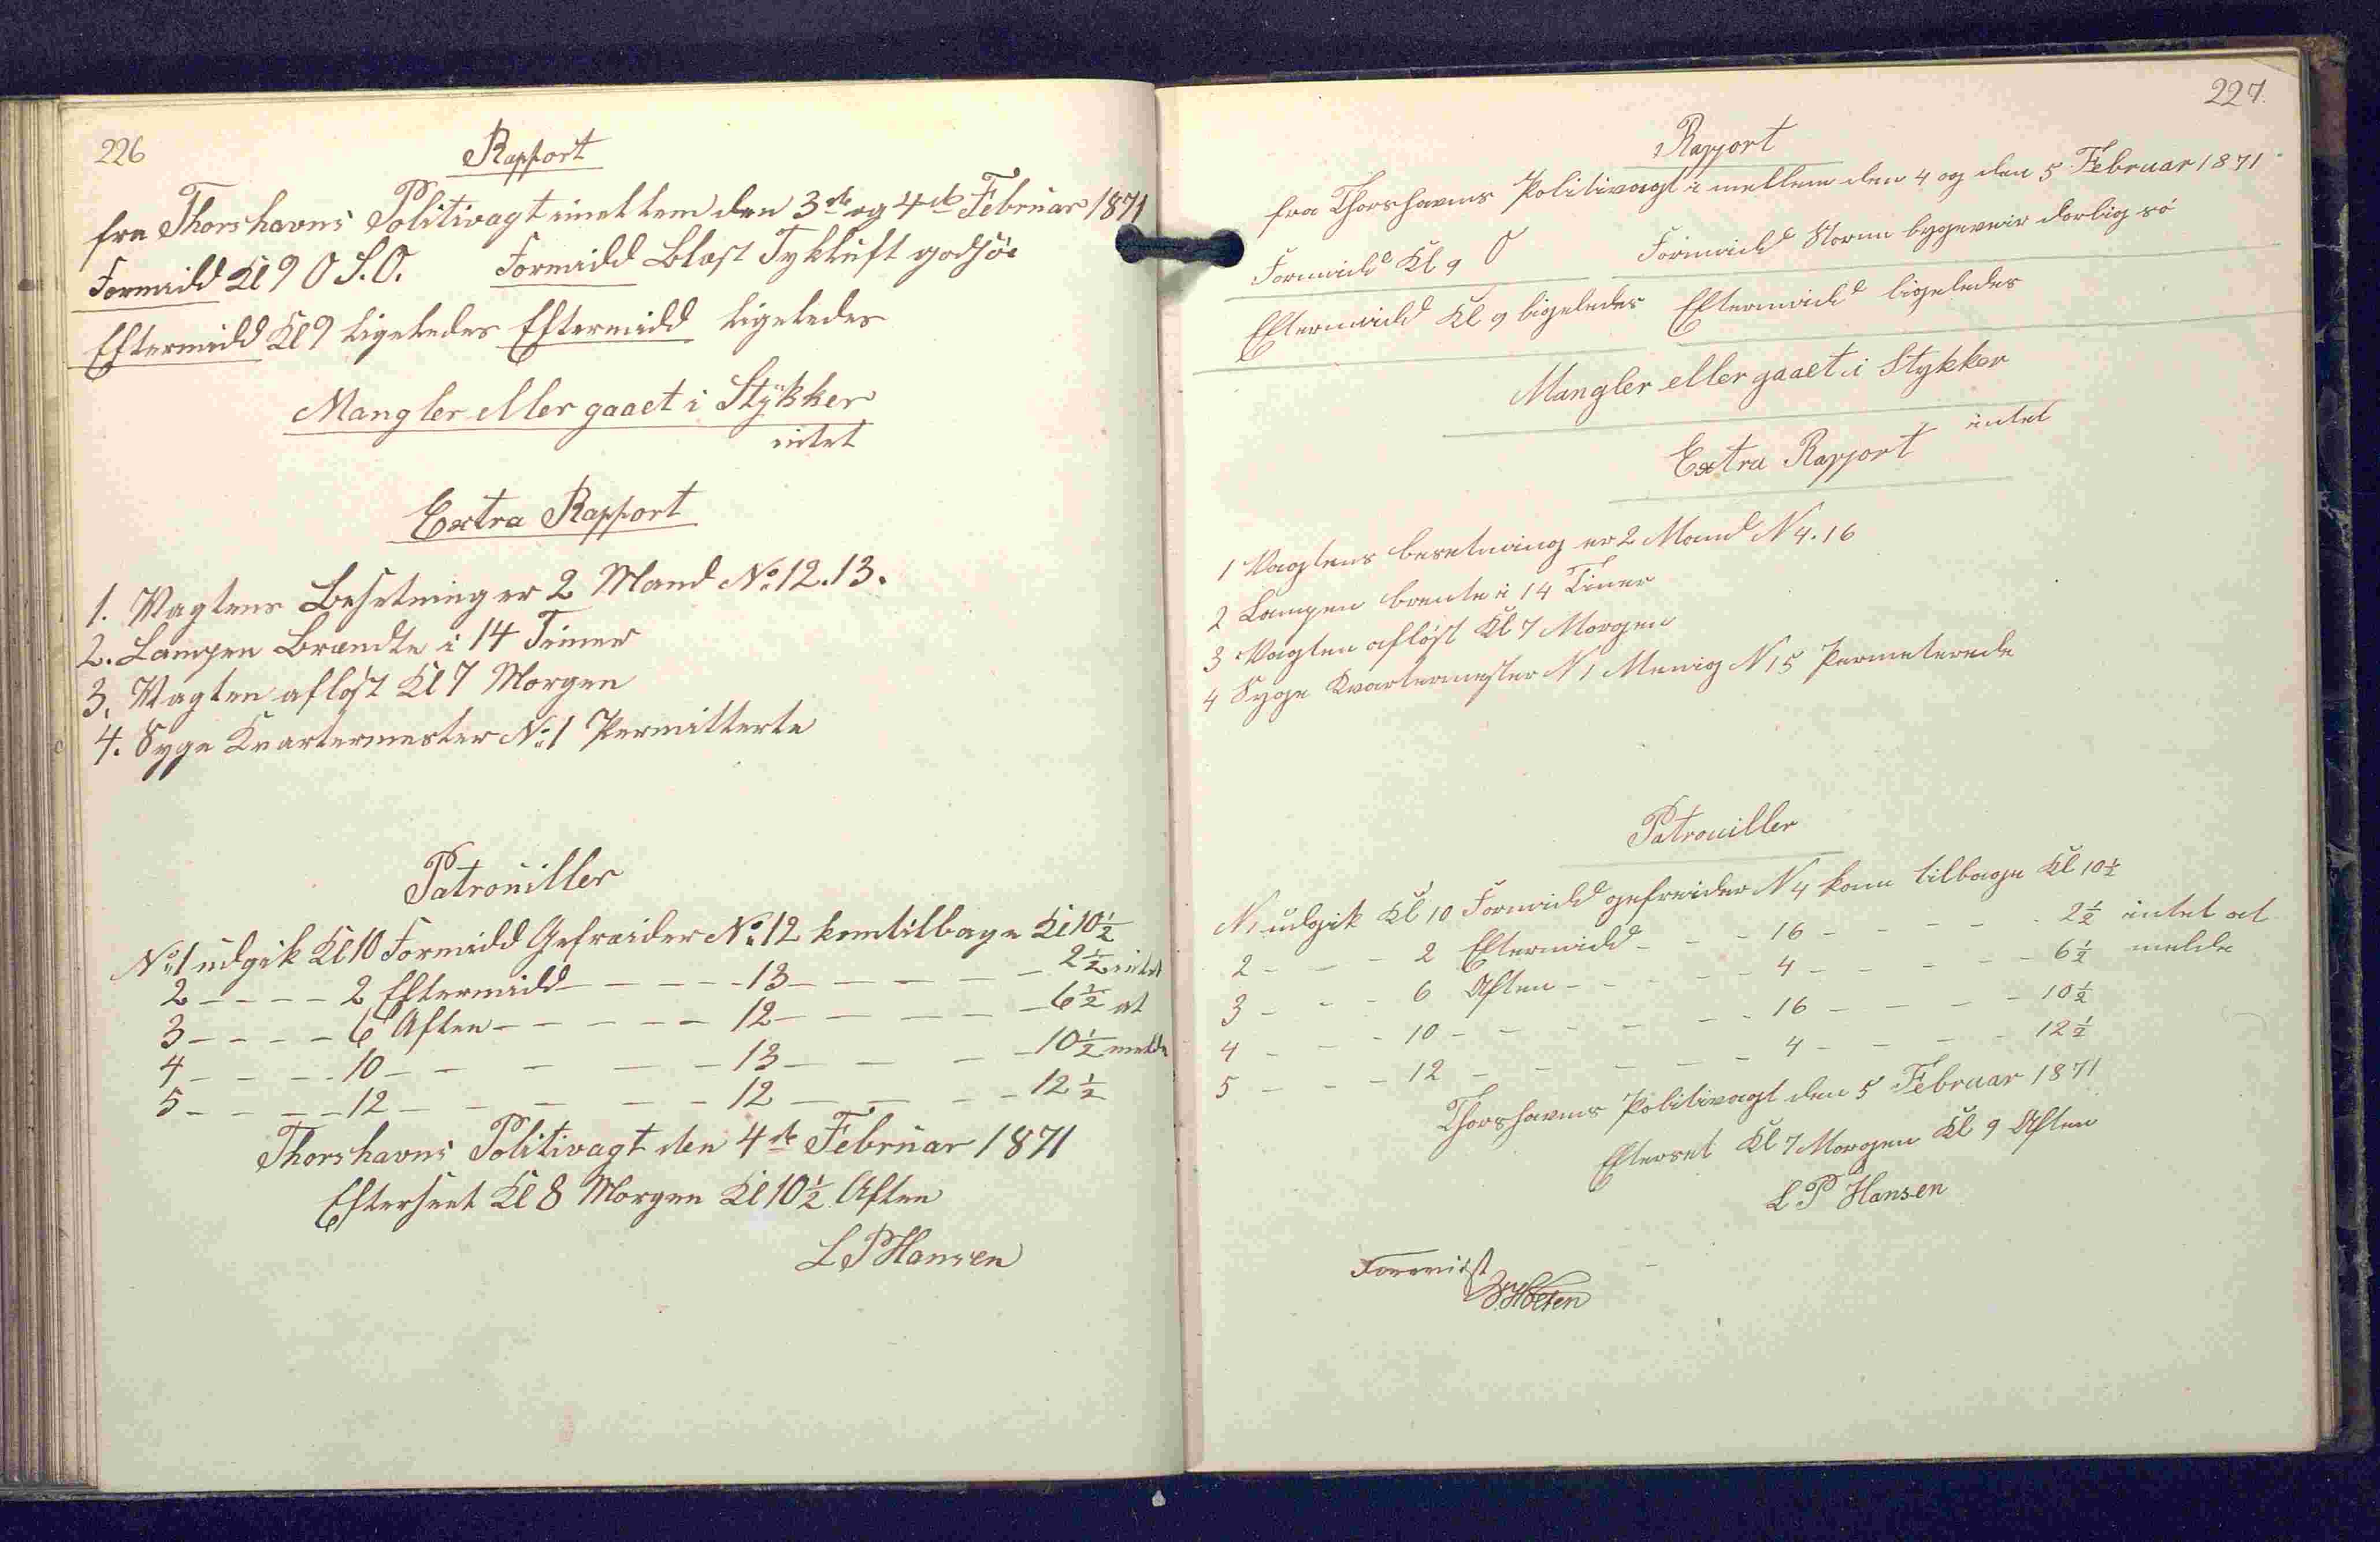 226
Rapport
fra Thorshavns Politivagt imellem den 3de og 4de Februar 1871
Formidd Kl 9 O S.O. Formidd Blæst Tykluft godsøe
Eftermidd Kl 9 ligeledes Eftermidd ligeledes
Mangler eller gaaet i Stykker
intet
Extra Rapport
1. Vagtens Besetning er 2 Mand No 12.13.
2. Lampen Brændte i 14 Timer
3. Vagten afløst Kl 7 Morgen
4. Syge Kvartermester No 1 Permitterte
Patrouiller
No 1 udgik Kl 10 Formidd Gefraider No 12 kom tilbage Kl 10½
2 - - - - 2 Eftermidd - - - - - 13 - - - - - 2½ intet
3 - - - - 6 Aften - - - - - 12 - - - - - 6½ at
4 - - - - 10 - - - - - 13 - - - - 10½ melde
5 - - - - 12 - - - - - 12 - - - - 12½
Thorshavns Politivagt den 4de Februar 1871
Efterseet Kl 8 Morgen Kl 10½ Aften
L P Hansen
227.
Rapport
fra Thorshavns Politivagt i mellem den 4 og den 5 Februar 1871
Formidd Kl 9 O Formidd Storm bygeveir dorlig sø
Eftermidd Kl 9 ligeledes Eftermidd ligeledes
Mangler eller gaaet i Stykker
intet
Extra Rapport
1 Vagtens besetning er 2 Mand N 4. 16
2 Lampen brente i 14 Timer
3 Vagten afløst Kl 7 Morgen
4 Syge Kvartermester N 1 Menig N 15 Permeterede
Patrouiller
N 1 udgik Kl 10 Formidd gefreider N 4 kom tilbage Kl 10½
2 - - - 2 Eftermidd - - - 16 - - - - - 2½ intet at
3 - - - 6 Aften - - - - - 4 - - - - - 6½ melde
4 - - - 10 - - - - - - 16 - - - - 10½
5 - - - 12 - - - - - - 4 - - - - 12½
Thorshavns Politivagt den 5 Februar 1871
Efterset Kl 7 Morgen Kl 9 Aften
L P Hansen
Forevist